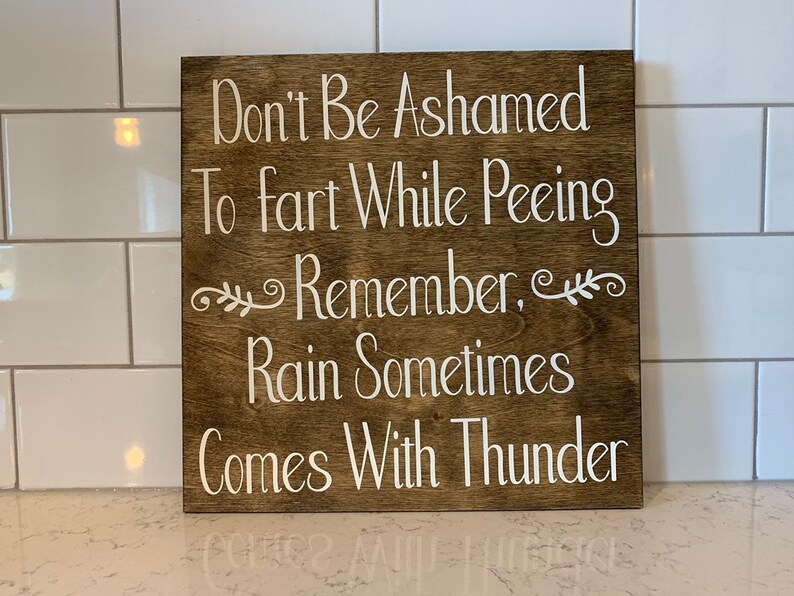 Don't Be Ashamed
To fart While Peeing
Remember,
Rain Sometimes
Comes With Thunder